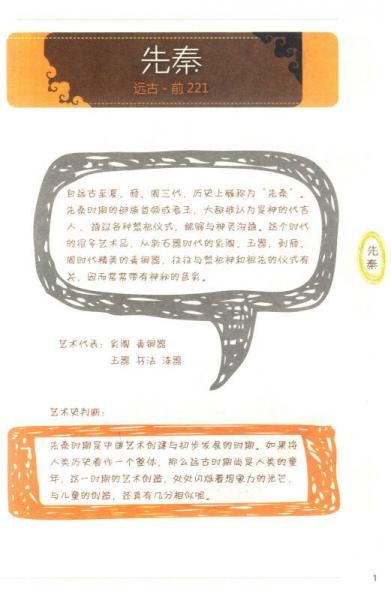 先秦
远古 - 前 221
自远古至夏、商、周三代，历史上概称为“先秦”。
先秦时期的部族首领或者王，大都被认为是神的代言
人，通过各种祭祀仪式，能够与神灵沟通。这个时代
的很多艺术品，从新石器时代的彩陶、玉器，到商、
周时代精美的青铜器，往往与祭祀神和祖先的仪式有
关，因而常常带有神秘的色彩。
先秦
艺术代表：彩陶 青铜器
玉器 书法 漆器
艺术史判断：
先秦时期是中国艺术创建与初步发展的时期。如果将
人类历史看作一个整体，那么远古时期尚是人类的童
年，这一时期的艺术创造，处处闪烁着想象力的光芒，
与儿童的创造，还真有几分相似呢。
1